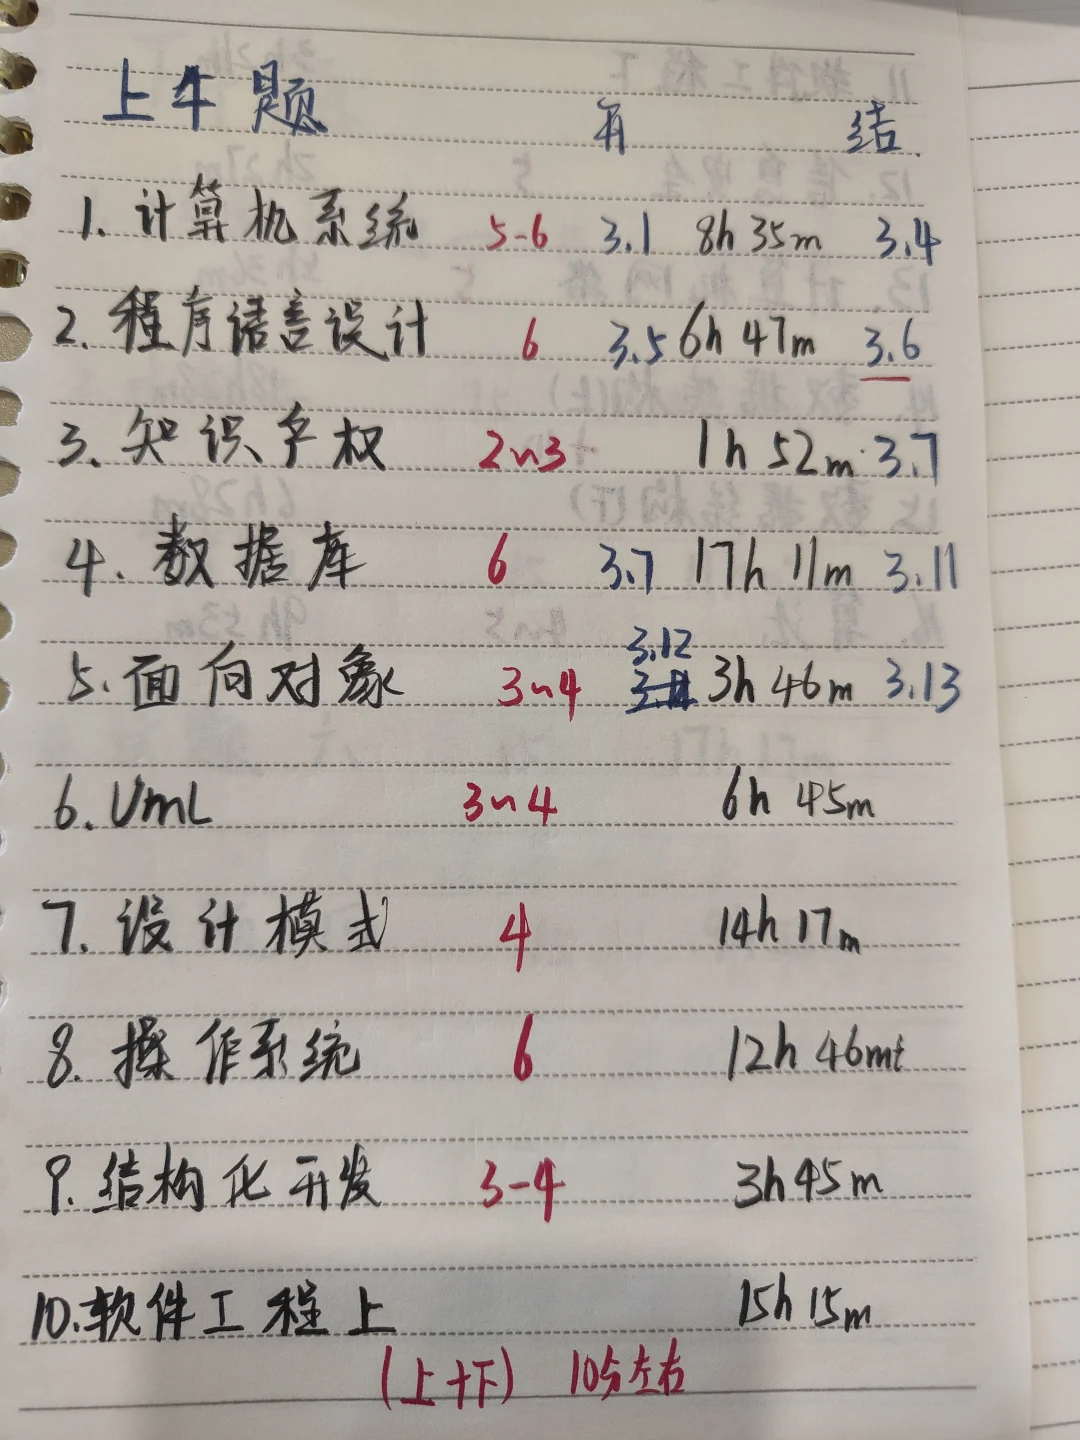 上午题 开 结
1. 计算机系统 5-6 3.1 8h 35m 3.4
2. 程序语言设计 6 3.5 6h 47m 3.6
3. 知识产权 2~3 1h 52m 3.7
4. 数据库 6 3.7 17h 11m 3.11
3.12
5. 面向对象 3~4 3h 46m 3.13
6. UmL 3~4 6h 45m
7. 设计模式 4 14h 17m
8. 操作系统 6 12h 46m
9. 结构化开发 3-4 3h45m
10. 软件工程上 15h 15m
(上+下) 10分左右